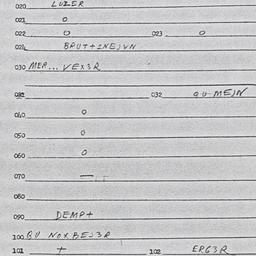 020 LUZER
021 0
022 0 023 0
024 BPUT++INEJVN
030 MEP... VEX3R
032 QU-MEJN
040 0
050 0
060 0
070 —
080
090 DEMP+
100 QU NOXBEJ3R
101 + 102 ERG3R